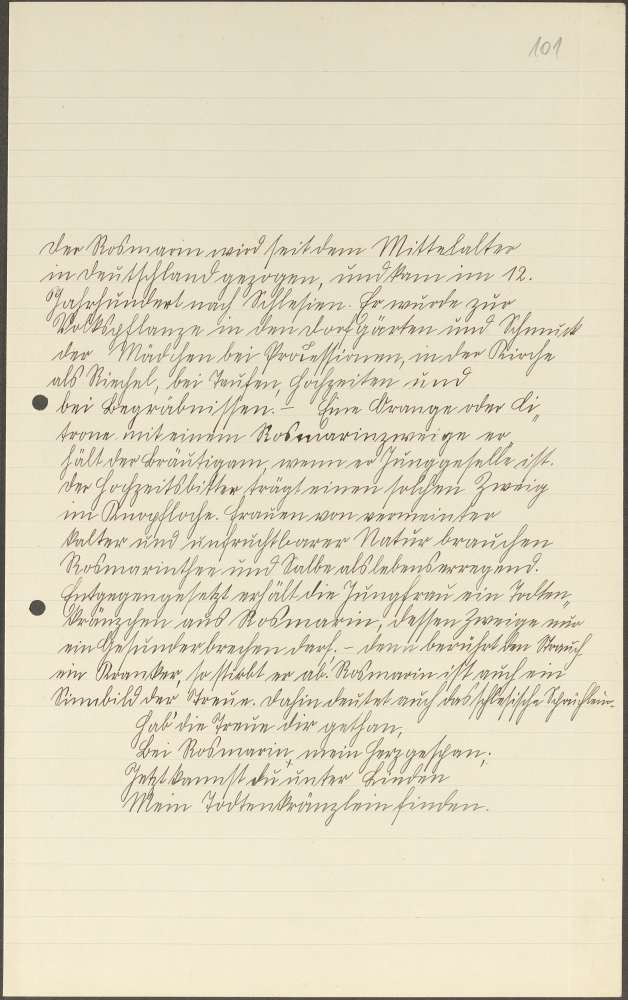 101
Der Rosmarin wird seit dem Mittelalter
in Deutschland gezogen, und kam im 12.
Jahrhundert nach Schlesien. Er wurde zur
Volkspflanze in den Dorfgärten und Schmuck
der Mädchen bei Processionen, in der Kirche
als Riechel, bei Taufen, Hochzeiten und
bei Begräbnissen. – Eine Orange oder Ci„
trone mit einem Rosmarinzweige er„
hält der Bräutigam, wenn er Junggeselle ist.
Der Hochzeitsbitter trägt einen solchen Zweig
im Knopfloche. Frauen von vermeinter
kalter und unfruchtbarer Natur brauchen
Rosmarinthee und Salbe als lebenserregend.
Entgegengesetzt erhält die Jungfrau ein Todten„
kränzchen aus Rosmarin, dessen Zweige nur
ein Gesunder brechen darf. – denn berührt den Strauch
ein Kranker, so stirbt er ab. Rosmarin ist auch ein
Sinnbild der Treue. Dahin deutet auch das schlesische
Hab' die Treue dir gethan,
Bei Rosmarin, mein Herzgespan;
Jetzt kannst du unter Linden
Mein Todtenkränzlein finden.